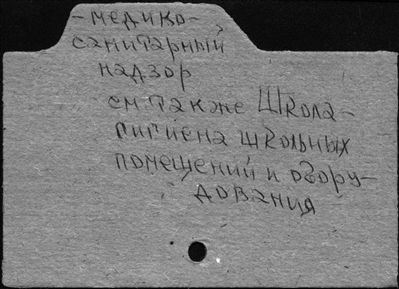 -медико-
санитарный
надзор
см. также Школа-
гигиена школьных
помещений и обору-
дования